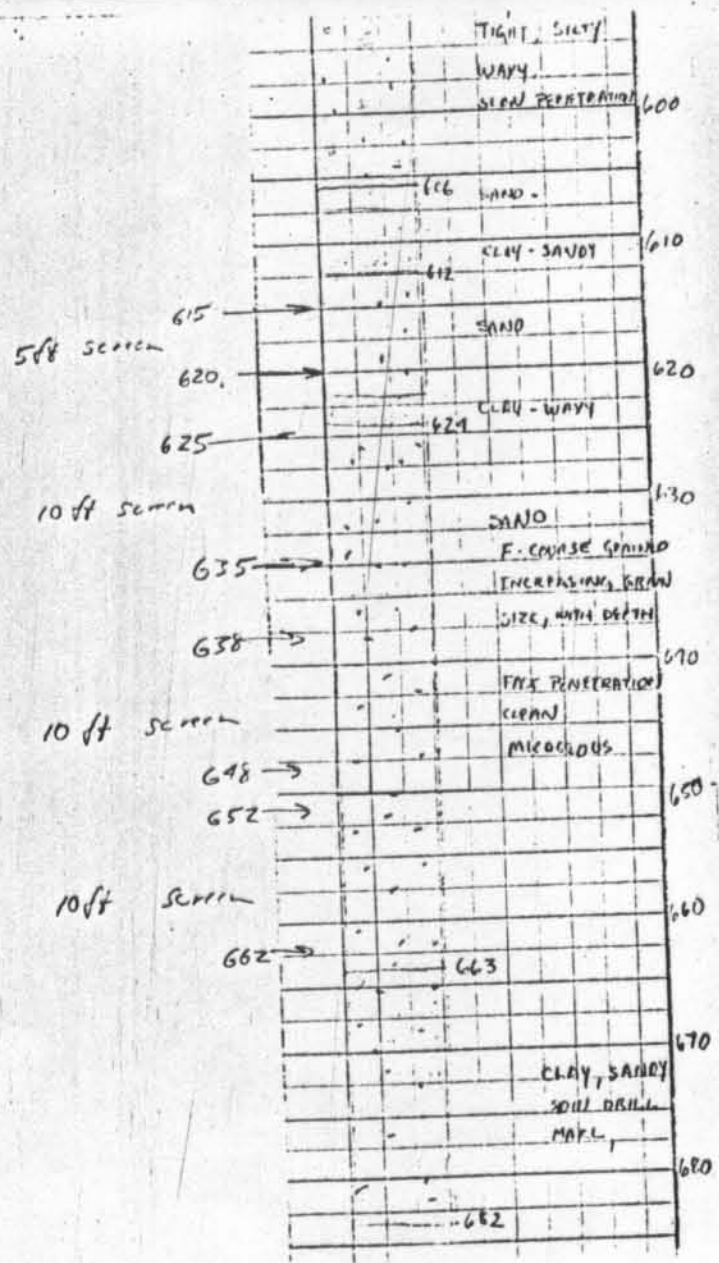 TIGHT, SILTY
WAXY
SLOW PENETRATION
600
606
SAND.
610
CLAY - SANDY
612
615
SAND
5ft screen
620
620.
CLAY - WAXY
624
625
630
10 ft screen
SAND
F-COURSE GRAINED
635
INCREASING, GRAIN
SIZE, WITH DEPTH
638
640
FAST PENETRATION
CLEAN
10 ft screen
648
650
652
660
10 ft screen
662
663
670
CLAY, SANDY
DRILL
680
682